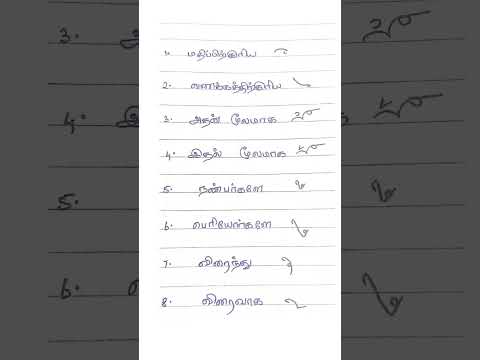 1. மதிப்பிற்குரிய
2. வணக்கத்திற்குரிய
3. அதன் மூலமாக
4. இதன் மூலமாக
5. நண்பர்களே
6. பெரியோர்களே
7. விரைந்து
8. விரைவாக